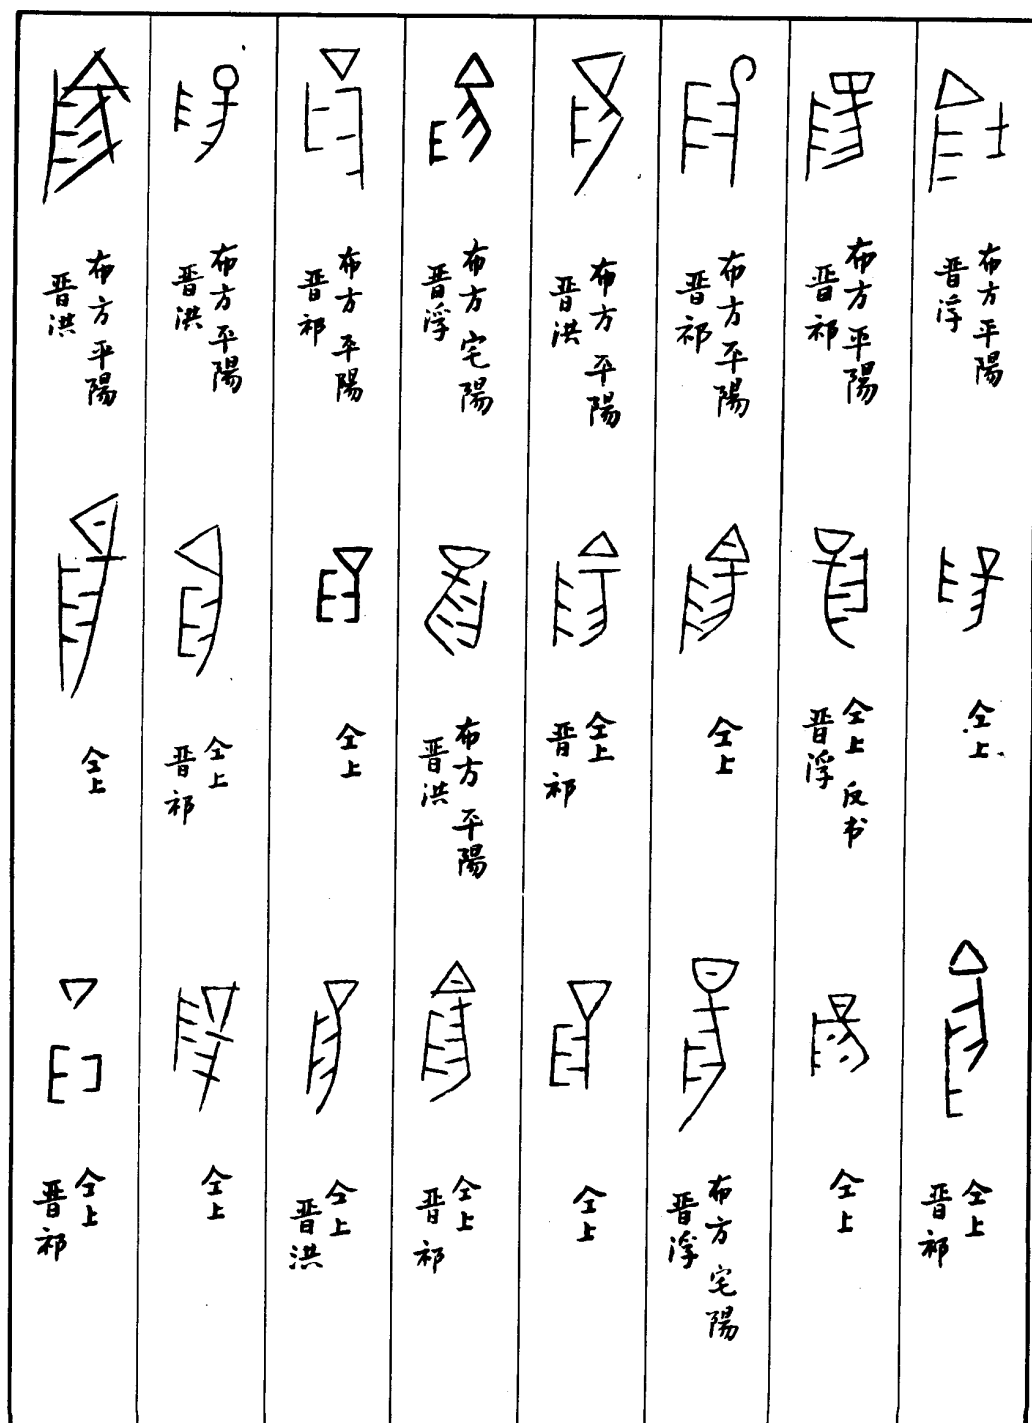 布方平陽
晋浮
仝上
仝上
晋祁
布方平陽
晋祁
仝上 反书
晋浮
仝上
布方平陽
晋祁
仝上
布方宅陽
晋浮
布方平陽
晋洪
仝上
晋祁
仝上
布方宅陽
晋浮
布方平陽
晋洪
仝上
晋祁
布方平陽
晋祁
仝上
仝上
晋洪
布方平陽
晋洪
仝上
晋祁
仝上
布方平陽
晋洪
仝上
仝上
晋祁